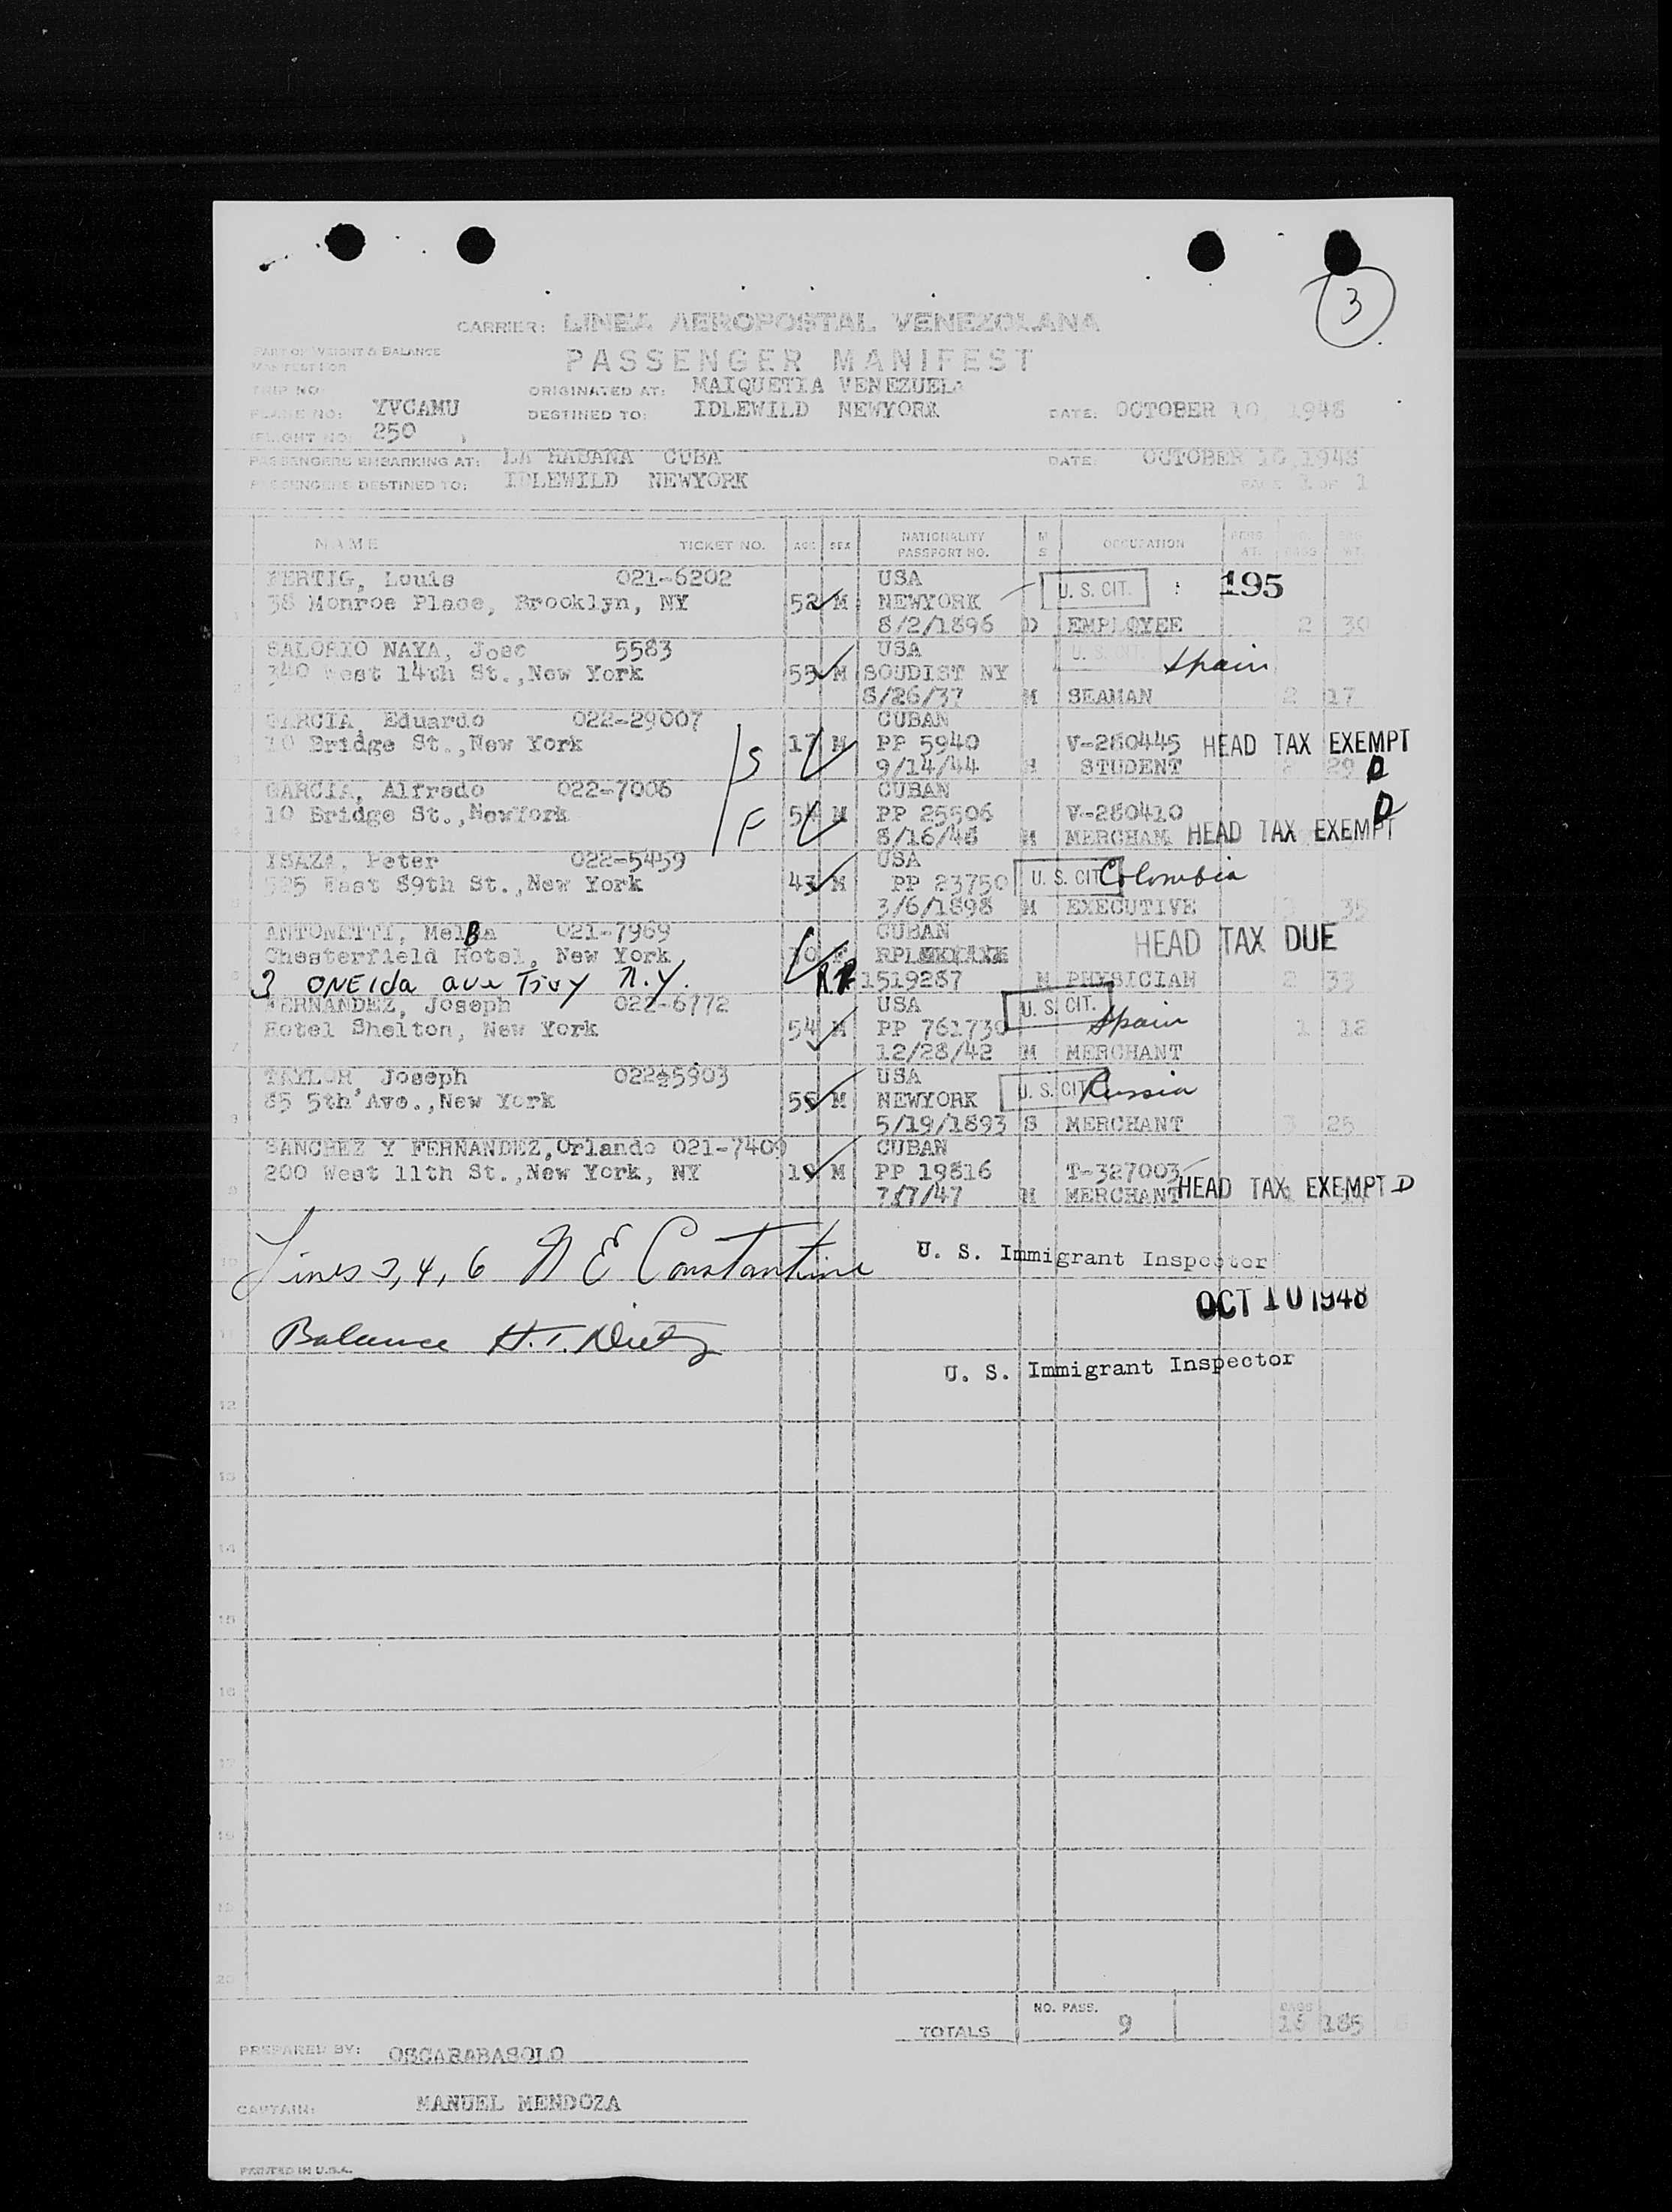 3
CARRIER: LINEA AEROPOSTAL VENEZOLANA
PART OF WEIGHT & BALANCE
MANIFEST FOR
PASSENGER MANIFEST
TRIP NO:
ORIGINATED AT: MAIQUETIA VENEZUELA
PLANE NO: YVCAMU
DESTINED TO: IDLEWILD NEWYORK DATE: OCTOBER 10, 1948
FLIGHT NO: 250
PASSENGERS EMBARKING AT: LA HABANA CUBA DATE: OCTOBER 10,1948
PASSENGERS DESTINED TO: IDLEWILD NEWYORK PAGE 1 OF 1
NAME TICKET NO. AGE SEX NATIONALITY PASSPORT NO. M S OCCUPATION
FERTIG, Louis 021-6202 USA U. S. CIT. 195
38 Monroe Place, Brooklyn, NY 52 M NEWYORK
1 8/2/1896 D EMPLOYEE 2 30
SALORIO NAYA, Jose 5583 USA U. S. CIT. Spain
340 west 14th St.,New York 55 M SOUDIST NY
2 8/26/37 M SEAMAN 2 17
GARCIA, Eduardo 022-29007 CUBAN
10 Bridge St.,New York S 17 M PP 5940 V-280445 HEAD TAX EXEMPT
3 9/14/44 STUDENT 2 29 D
GARCIA, Alfredo 022-7006 CUBAN D
10 Bridge St.,NewYork F 54 M PP 25506 V-280410
8/16/48 M MERCHAN HEAD TAX EXEMPT
ISAZA, Peter 022-5459 USA U. S. CIT. Colombia
525 East 89th St.,New York 43 M PP 23750
3/6/1898 M EXECUTIVE 35
ANTONETTI, MelBa 021-7969 CUBAN HEAD TAX DUE
Chesterfield Hotel, New York 30 F
6 3 ONEIda ave Troy N.Y. 1519287 M PHYSICIAN 2 33
FERNANDEZ, Joseph 022-6772 USA U. S. CIT. Spain
Hotel Shelton, New York 54 M PP 761730 1 12
7 12/28/42 M MERCHANT
TAYLOR, Joseph 022-5903 USA U. S. CIT. Russia
85 5th Ave.,New York 55 M NEWYORK
5/19/1893 S MERCHANT 3 25
SANCHEZ Y FERNANDEZ,Orlando 021-7409 CUBAN
200 West 11th St.,New York, NY 19 M PP 19816 T-327003
9 7/7/47 M MERCHANT HEAD TAX EXEMPT D
Lines 3, 4, 6 N E Constantine U. S. Immigrant Inspector
10
OCT 10 1948
Balance H.T. Dietz
11
U. S. Immigrant Inspector
12
13
14
15
16
17
18
19
20
TOTALS NO. PASS. 9 BAGS 16 185
PREPARED BY: OSCARABASOLO
CAPTAIN: MANUEL MENDOZA
PRINTED IN U.S.A.